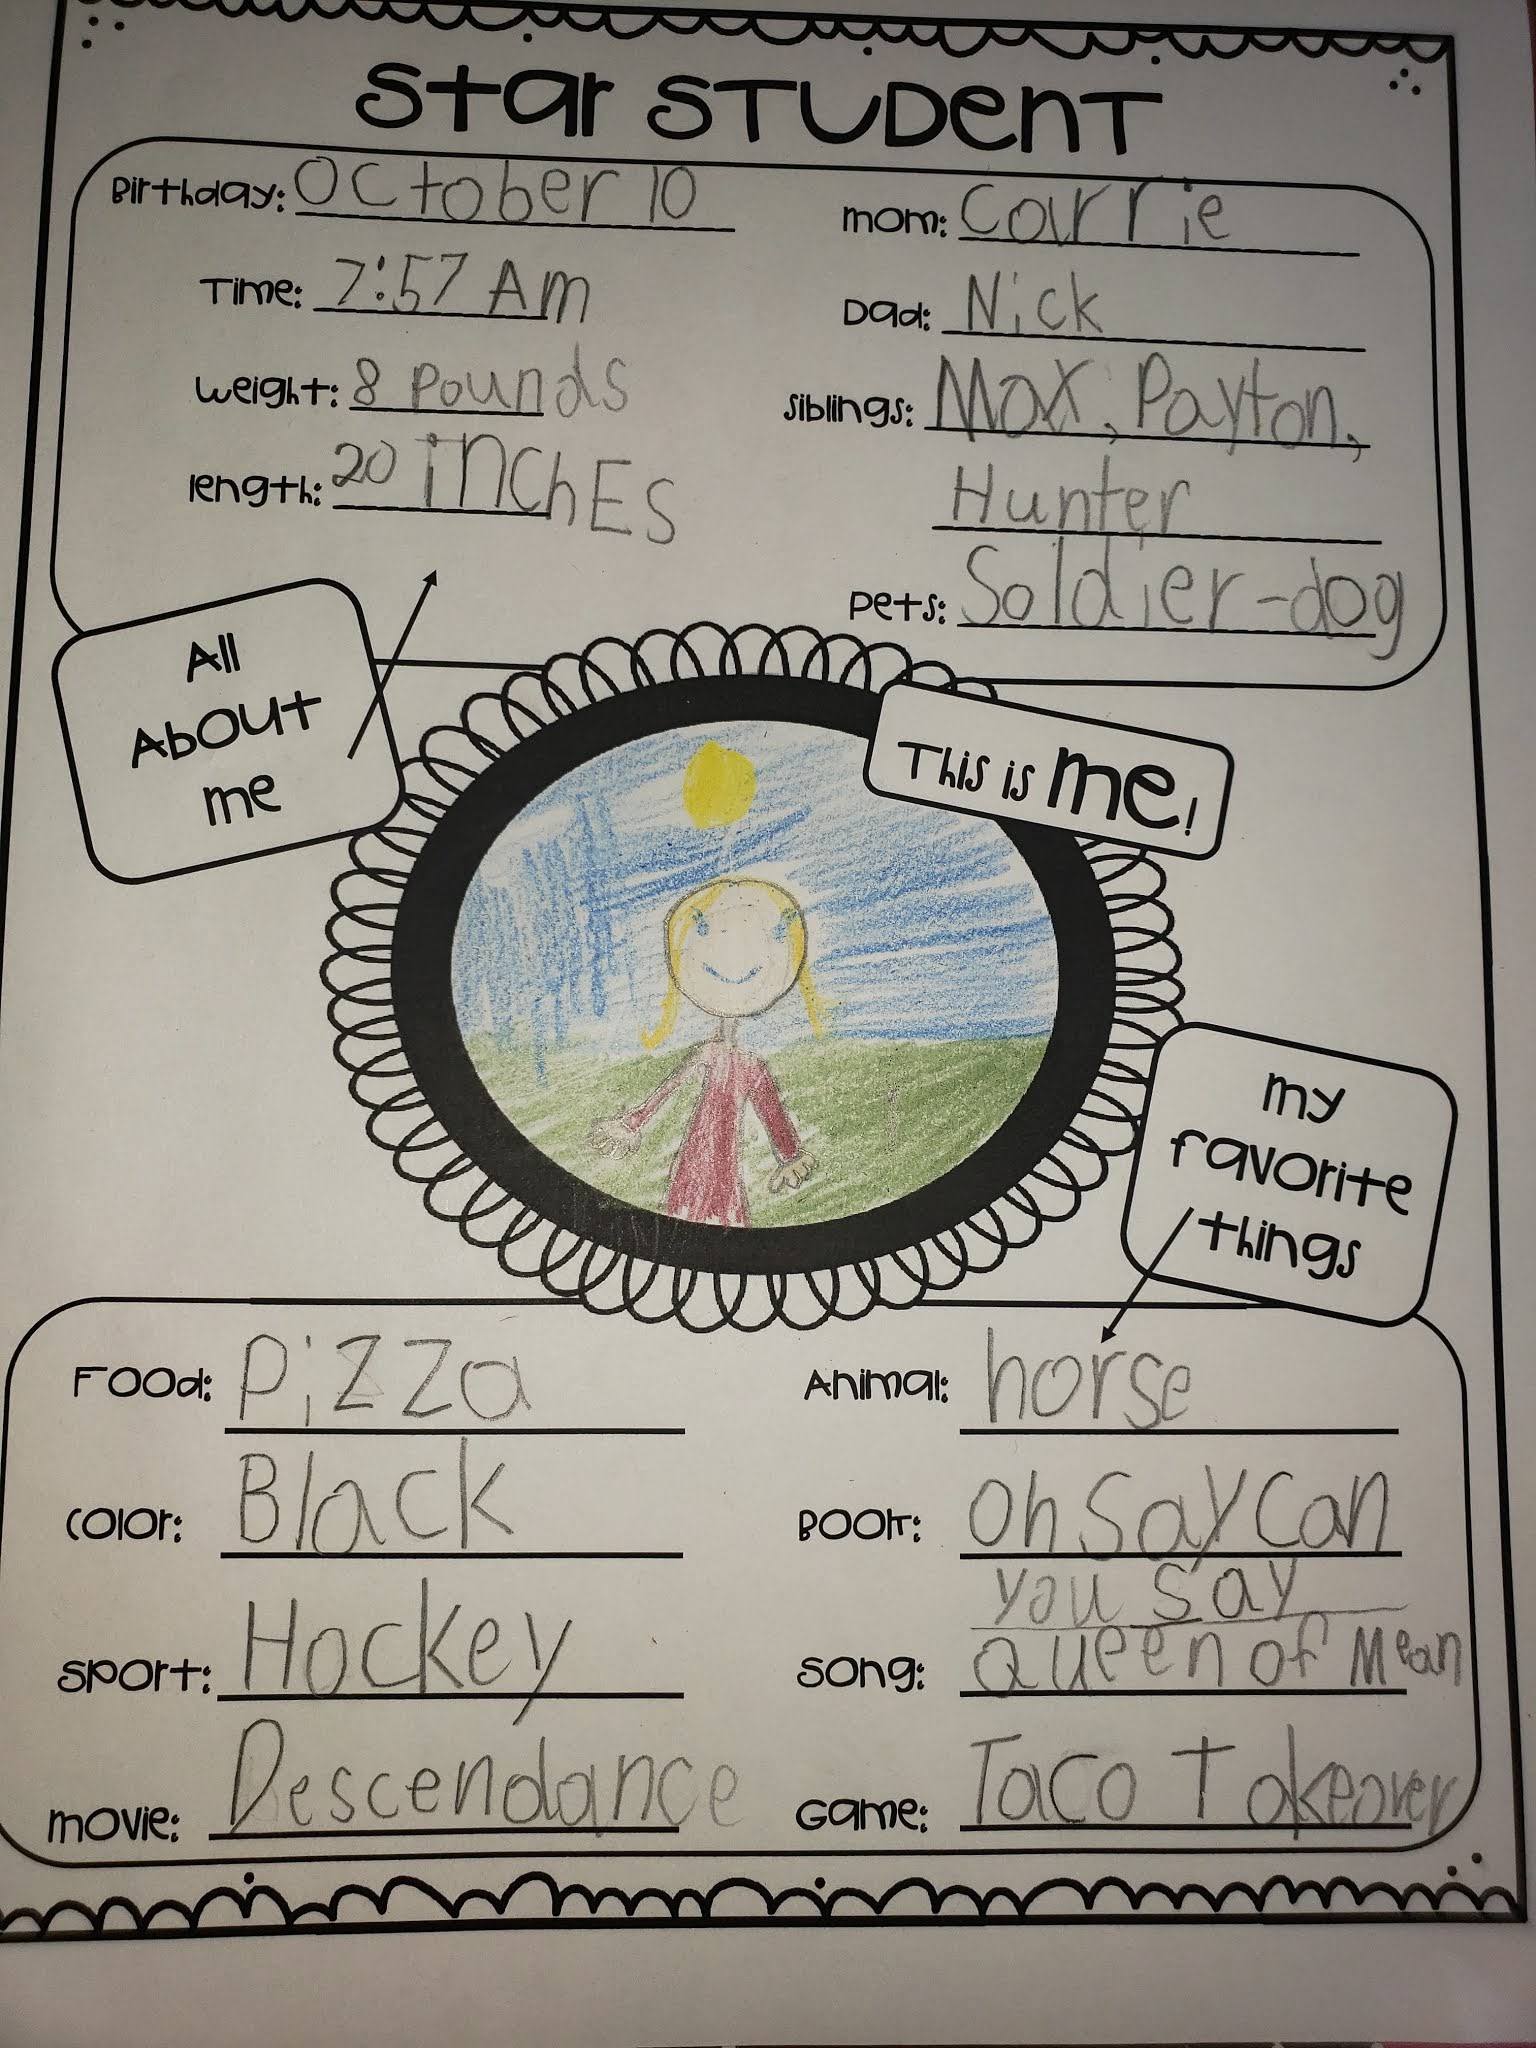 Star STUDENT
Birthday: October 10
Time: 7:57 Am
weight: 8 pounds
length: 20 inchEs
mom: Carrie
Dad: Nick
siblings: Max, Payton,
Hunter
Pets: Soldier-dog
All
About
me
This is me!
my
favorite
things
Food: Pizza
color: Black
sport: Hockey
movie: Descendance
Animal: horse
Book: Oh Say Can
you say
song: Queen of Mean
Game: Taco Takeover